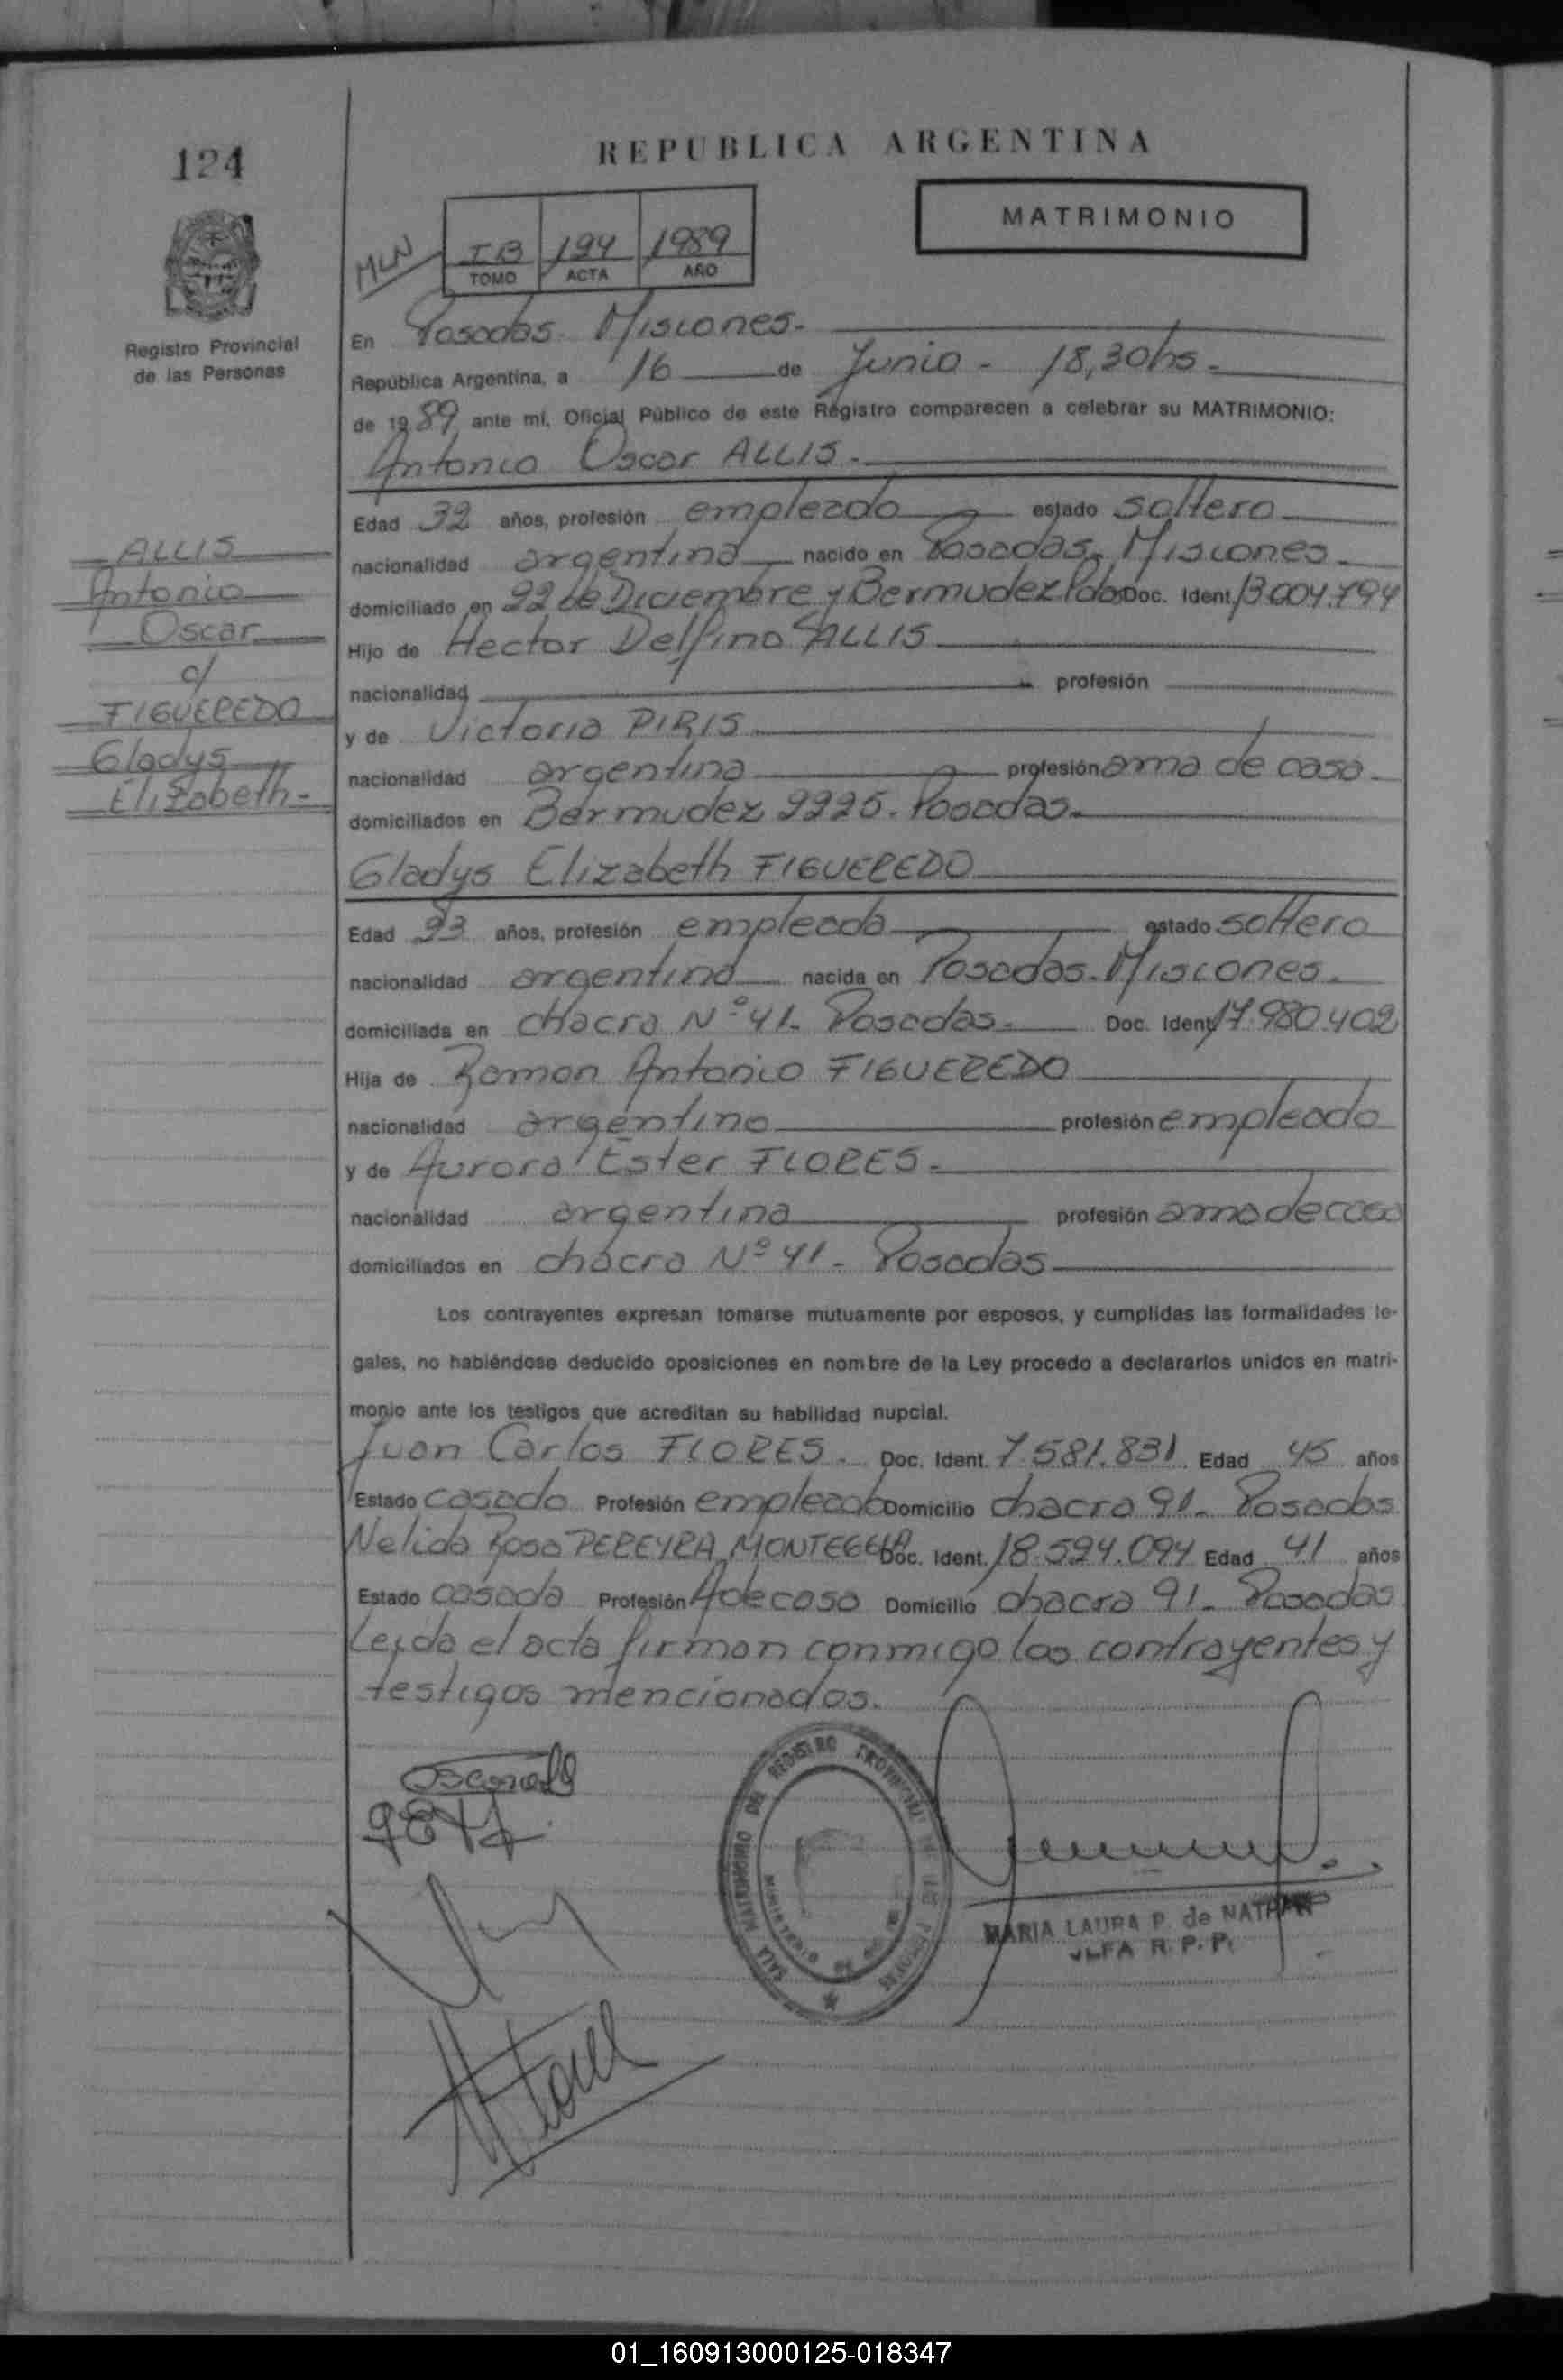 124
REPUBLICA ARGENTINA
MATRIMONIO
MLN
I B 194 1989
TOMO ACTA AÑO
Registro Provincial
de las Personas
En Posadas. Misiones.
República Argentina, a 16 de Junio - 18,30hs.
de 1989 ante mí, Oficial Público de este Registro comparecen a celebrar su MATRIMONIO:
Antonio Oscar ALLIS.
Edad 32 años, profesión empleado estado soltero
nacionalidad argentina nacido en Posadas. Misiones
domiciliado en 22 de Diciembre y Bermudez Pdas Doc. Ident. 13.004.794
Hijo de Hector Delfino ALLIS
nacionalidad profesión
y de Victoria PIRIS
nacionalidad argentina profesión ama de casa
domiciliados en Bermudez 2225. Posadas.
ALLIS
Antonio
Oscar
c/
FIGUEREDO
Gladys
Elizabeth-
Gladys Elizabeth FIGUEREDO
Edad 23 años, profesión empleada estado soltera
nacionalidad argentina nacida en Posadas. Misiones.
domiciliada en chacra Nº 41. Posadas. Doc. Ident. 17.980.402
Hija de Ramon Antonio FIGUEREDO
nacionalidad argentino profesión empleado
y de Aurora Ester FLORES.
nacionalidad argentina profesión ama de casa
domiciliados en chacra Nº 41. Posadas
Los contrayentes expresan tomarse mutuamente por esposos, y cumplidas las formalidades le-
gales, no habiéndose deducido oposiciones en nombre de la Ley procedo a declararlos unidos en matri-
monio ante los testigos que acreditan su habilidad nupcial.
Juan Carlos FLORES. Doc. Ident. 7.581.831 Edad 45 años
Estado casado Profesión empleado Domicilio chacra 91. Posadas
Nelida Rosa PEREYRA MONTEGGIA Doc. Ident. 18.594.094 Edad 41 años
Estado casada Profesión A de casa Domicilio chacra 91. Posadas
Leida el acta firman conmigo los contrayentes y
testigos mencionados.
SALA MATRIMONIO DEL REGISTRO PROVINCIAL DE LAS PERSONAS
MARIA LAURA P. de NATHAN
JEFA R. P. P.
01_160913000125-018347